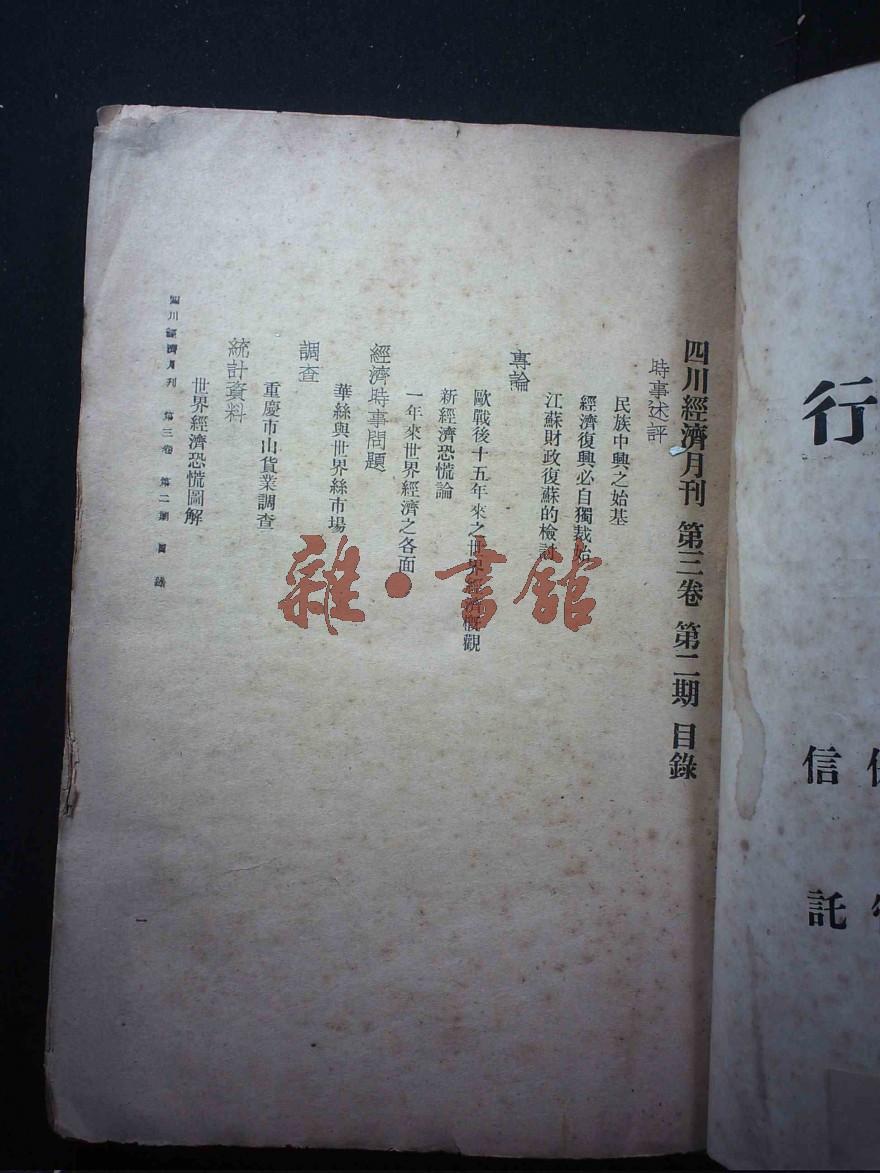 四川經濟月刊 第三卷 第二期 目錄
時事述評
民族中興之始基
經濟復興必自獨裁始
江蘇財政復蘇的檢討
專論
歐戰後十五年來之世界經濟概觀
新經濟恐慌論
一年來世界經濟之各面
經濟時事問題
華絲與世界絲市場
調查
重慶市山貨業調查
統計資料
世界經濟恐慌圖解
四川經濟月刊 第三卷 第二期 目錄
一
雜·書館
行
信
託